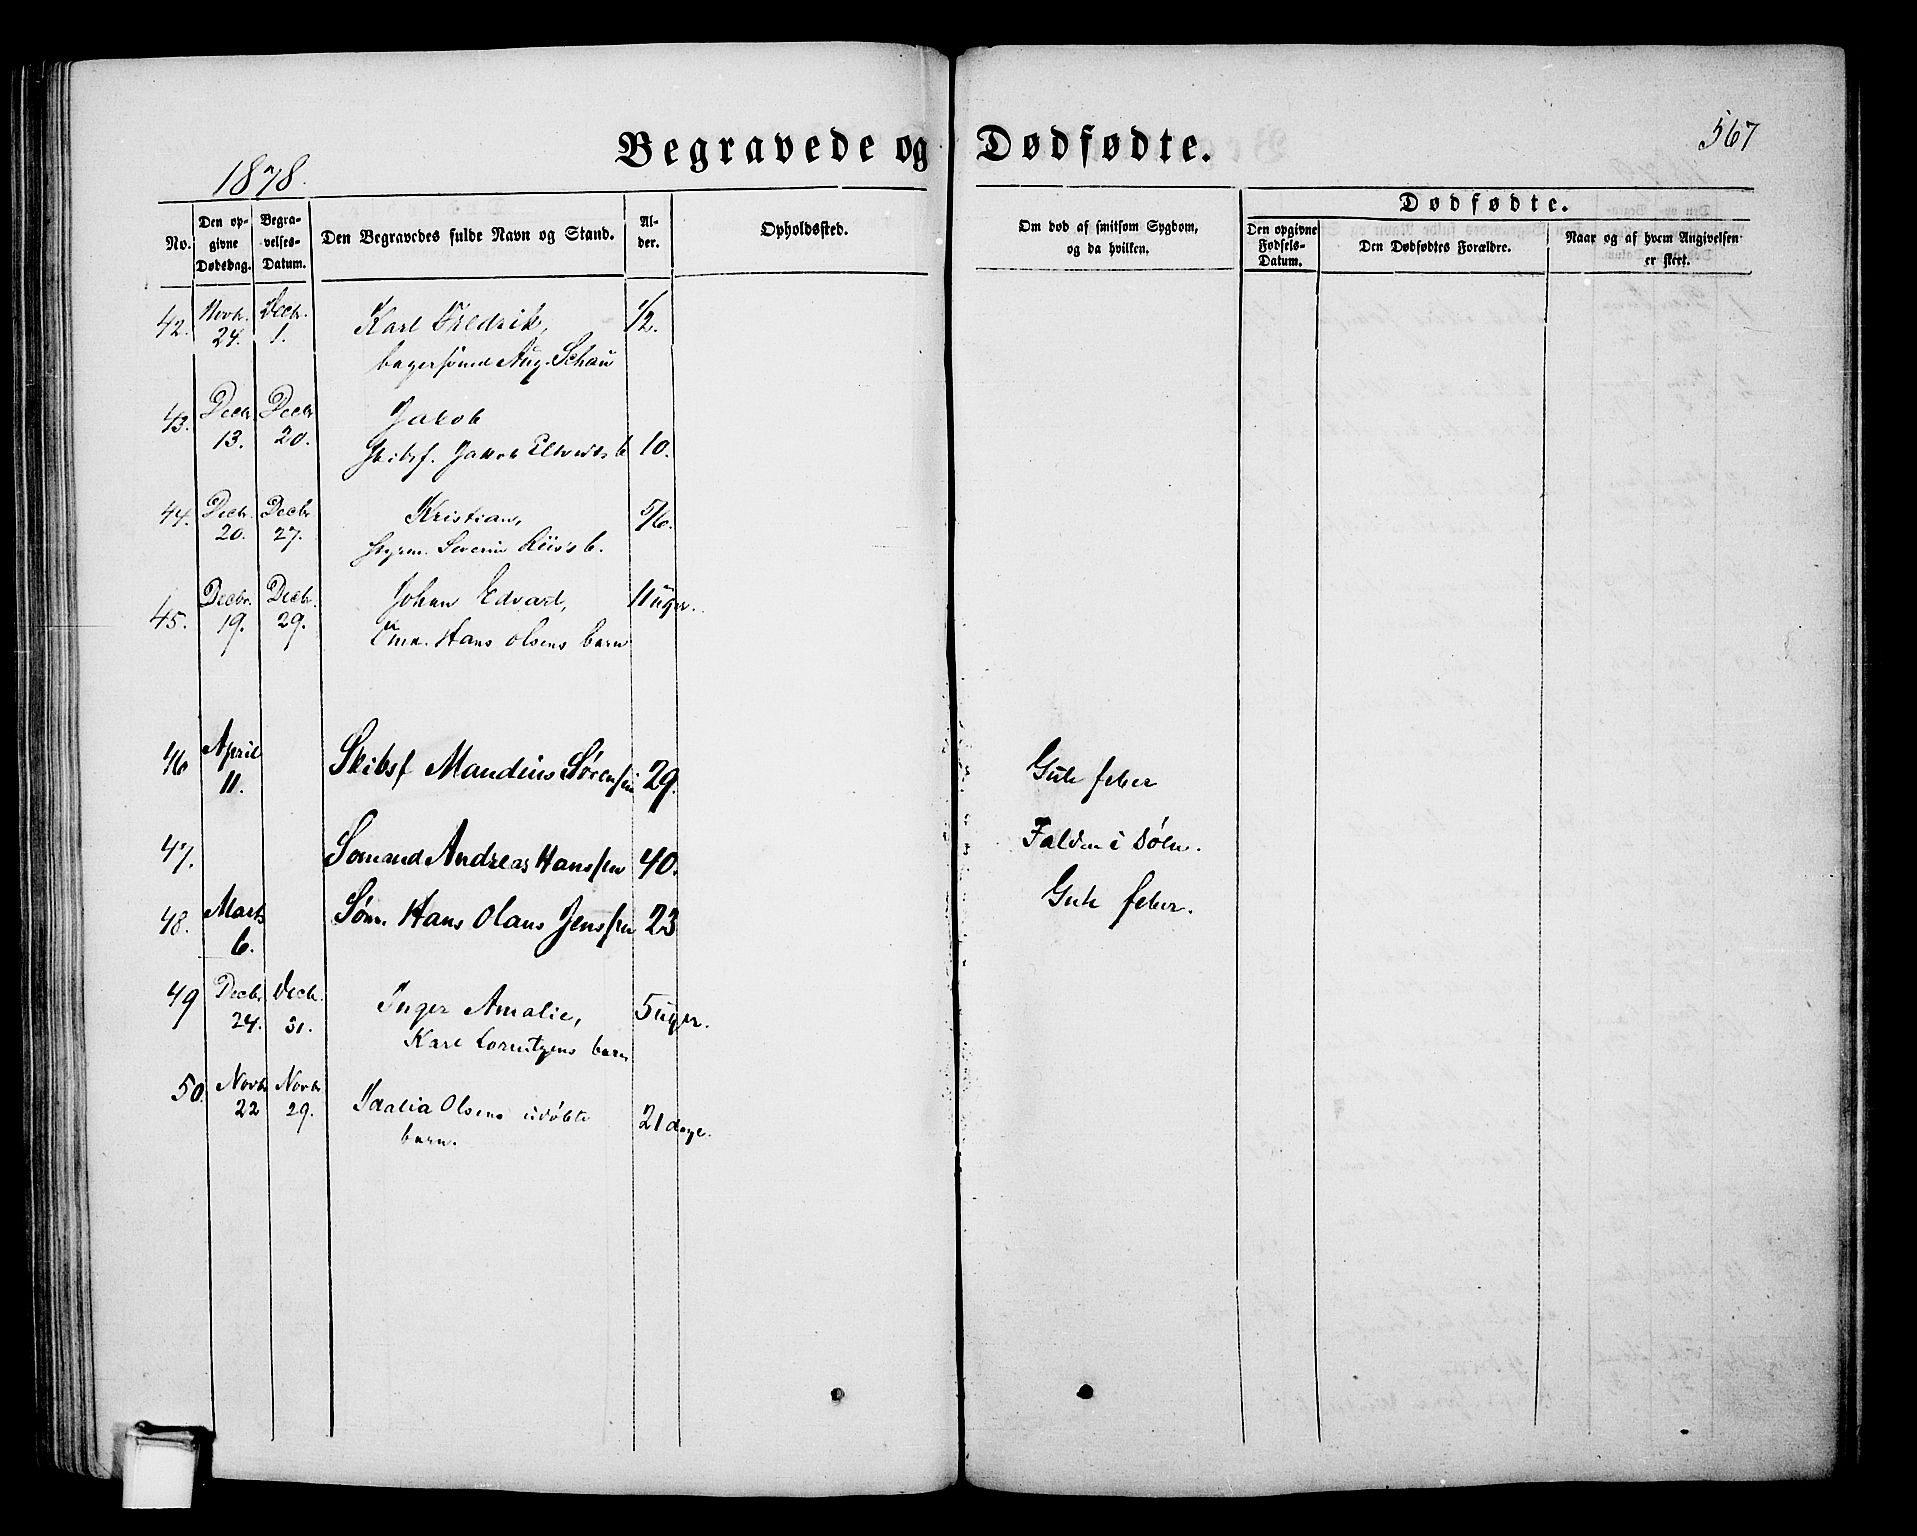 Begravede og Dødfødte.
567
1878.
No.
Den opgivne Dødsdag.
Begravelses-Datum.
Den Begravedes fulde Navn og Stand.
Alder.
Opholdssted.
Om død af smitsom Sygdom, og da hvilken.
Dødfødte.
Den opgivne Fødsels-Datum.
Den Dødfødtes Forældre.
Naar og af hvem Angivelsen er skeet.
42. Novb. 24. Decb. 1. Karl Fredrik, 1/2.
Aug. Schau
43. Decbr 13. Decbr 20. Jakob
Skibsf. Jakob b 10.
44. Decbr. 20. Decbr 27. Kristian, 5/6.
Severin Liiss b.
45. Decbr. 19. Decbr. 29. Johan Edvart, 11 uger.
Hans Olsens barn
46 April 11. Skibsf Mandius Sørenssen 29. Gule feber
47. Sømand Andreas Hanssen 40. Falden i Søen.
48. Marts 6. Søm. Hans Olaus Jenssen 23 Gule feber.
49 Decbr. 24. Decb. 31. Inger Amalie, 5 uger.
Karl Lorentzens barn
50. Novb. 22 Novb. 29. Idalia Olsens udøbte 21 dage.
barn.